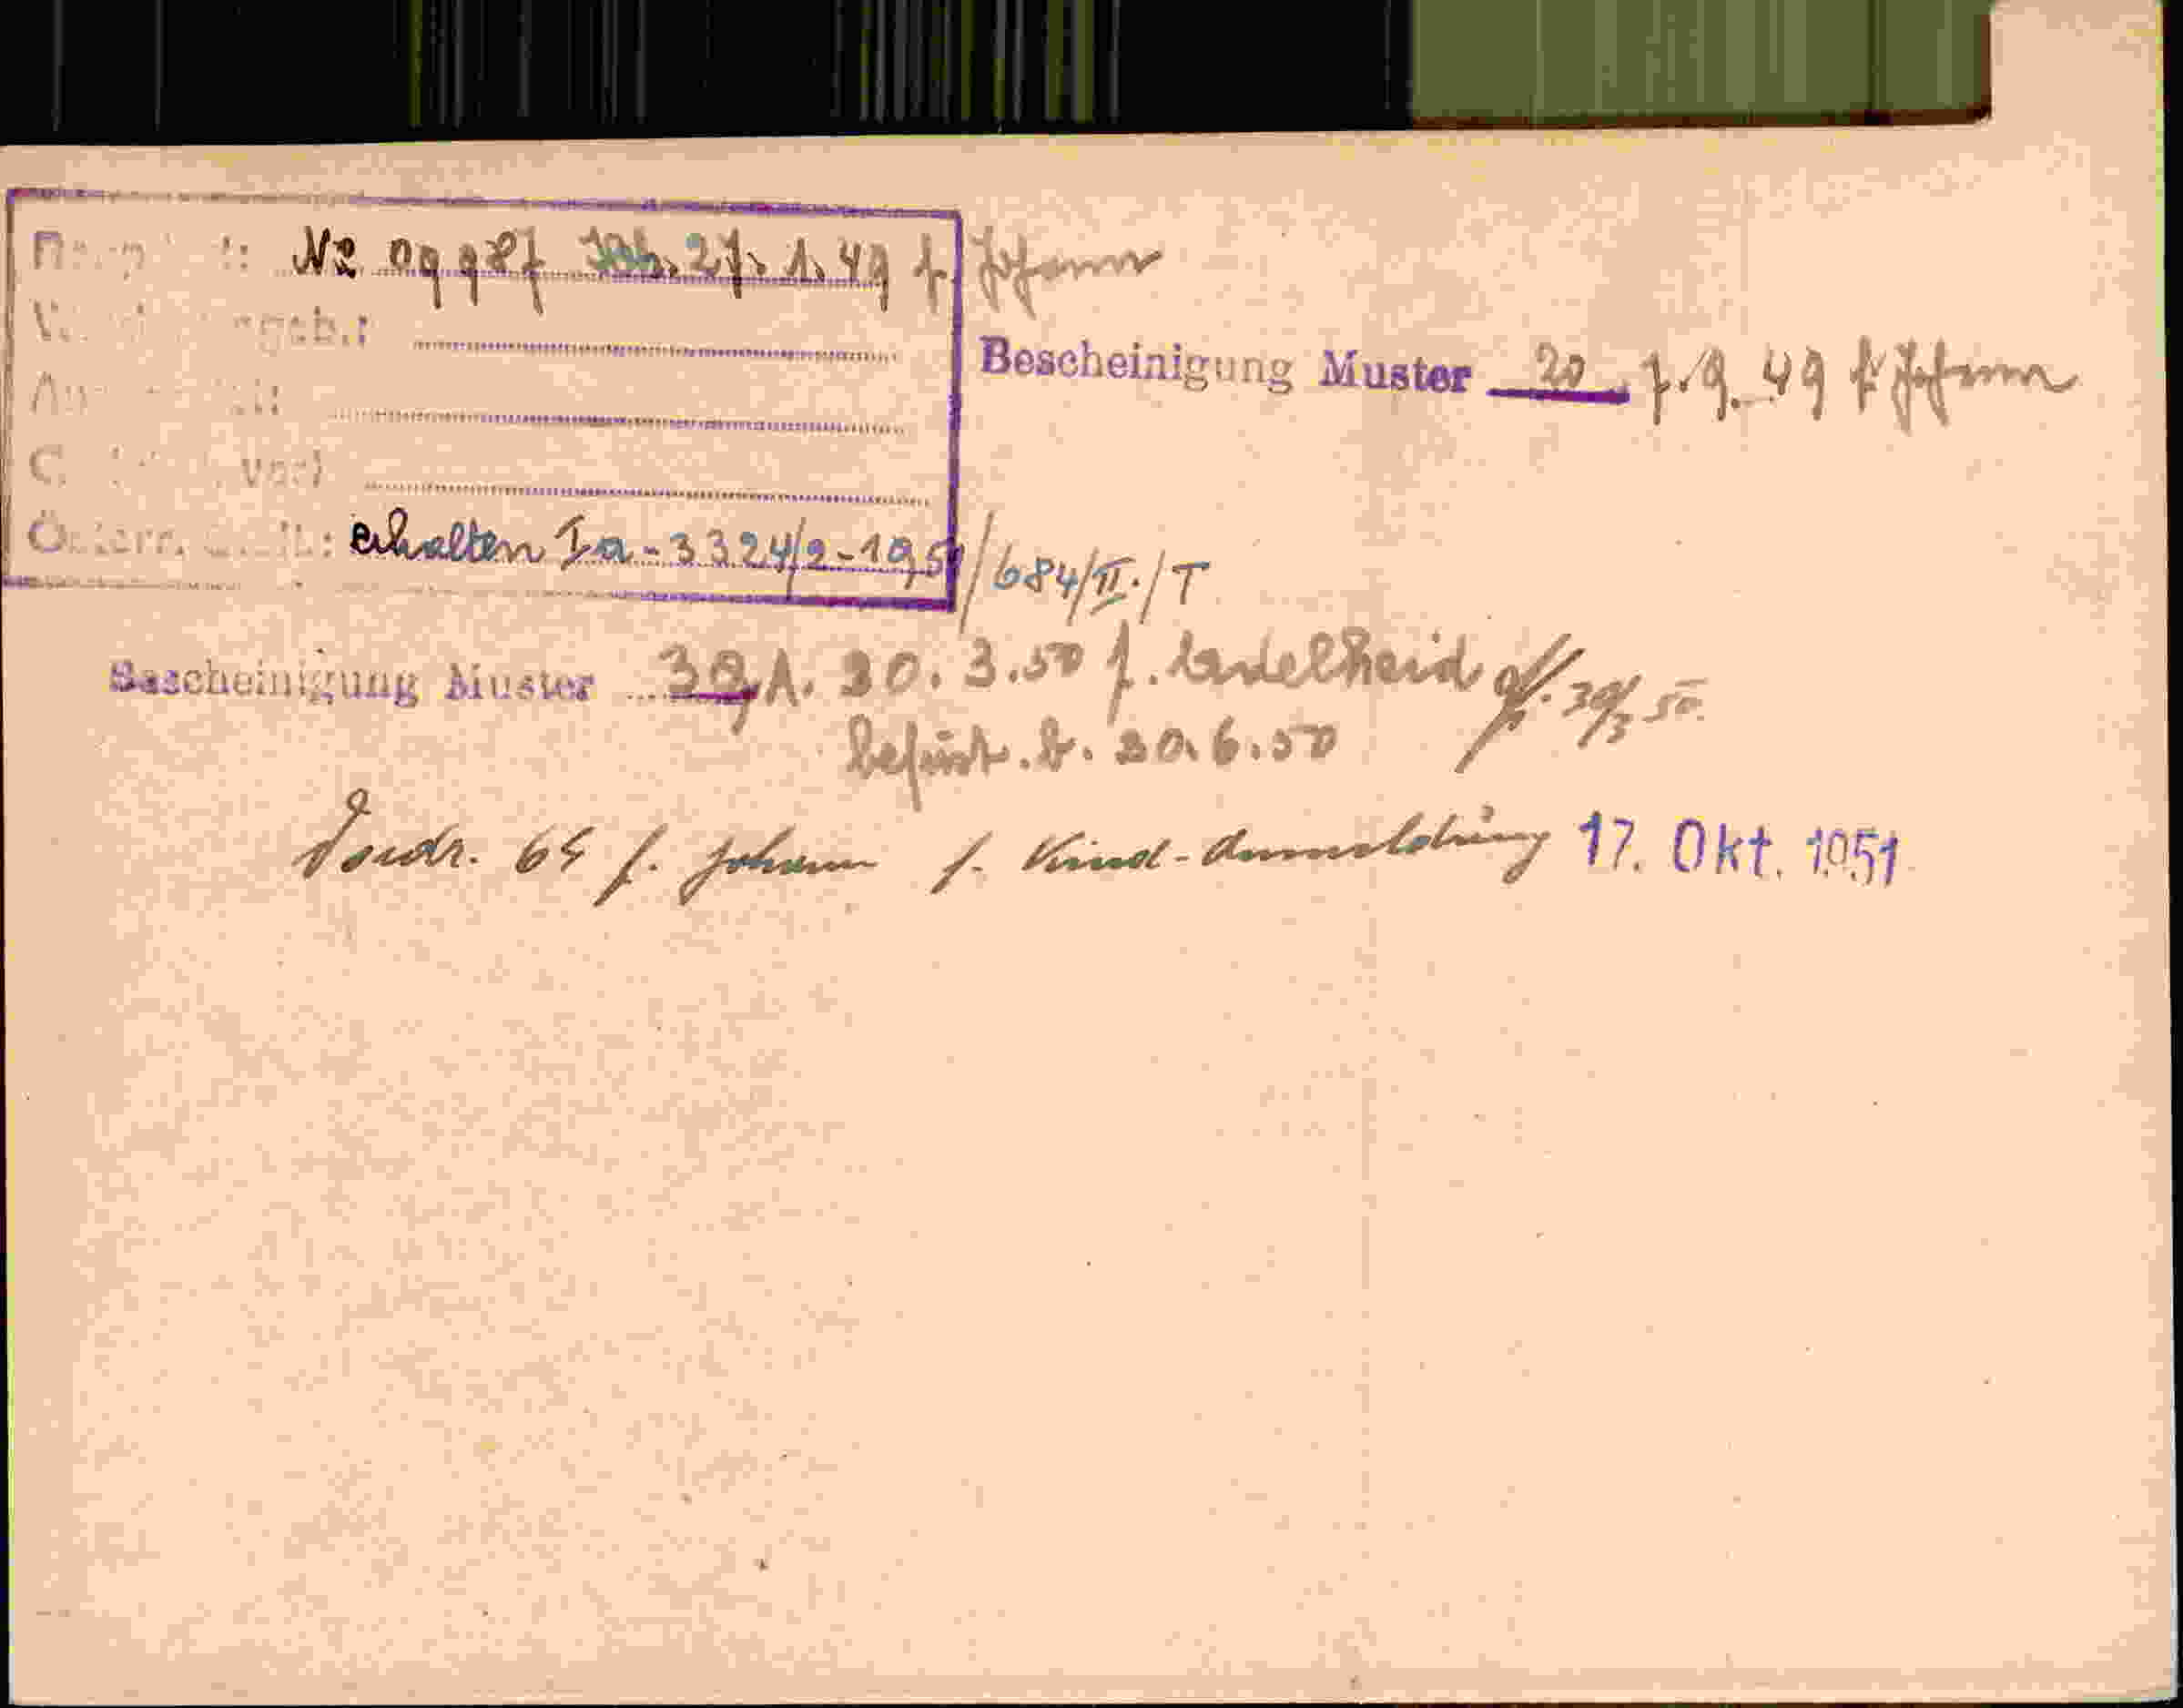 № 09987 27. 1. 49 f. Johann
geb.:
Bescheinigung Muster 20 7. 9. 49 f. Johann
Österr. : erhalten Ia-3324/2-1951/684/II./T
Bescheinigung Muster 30. 3. 50 f. Adelheid 30/3 50.
befrist. b. 30. 6. 50
Vordr. 64 f. Johann f. Kind-Anmeldung 17. Okt. 1951